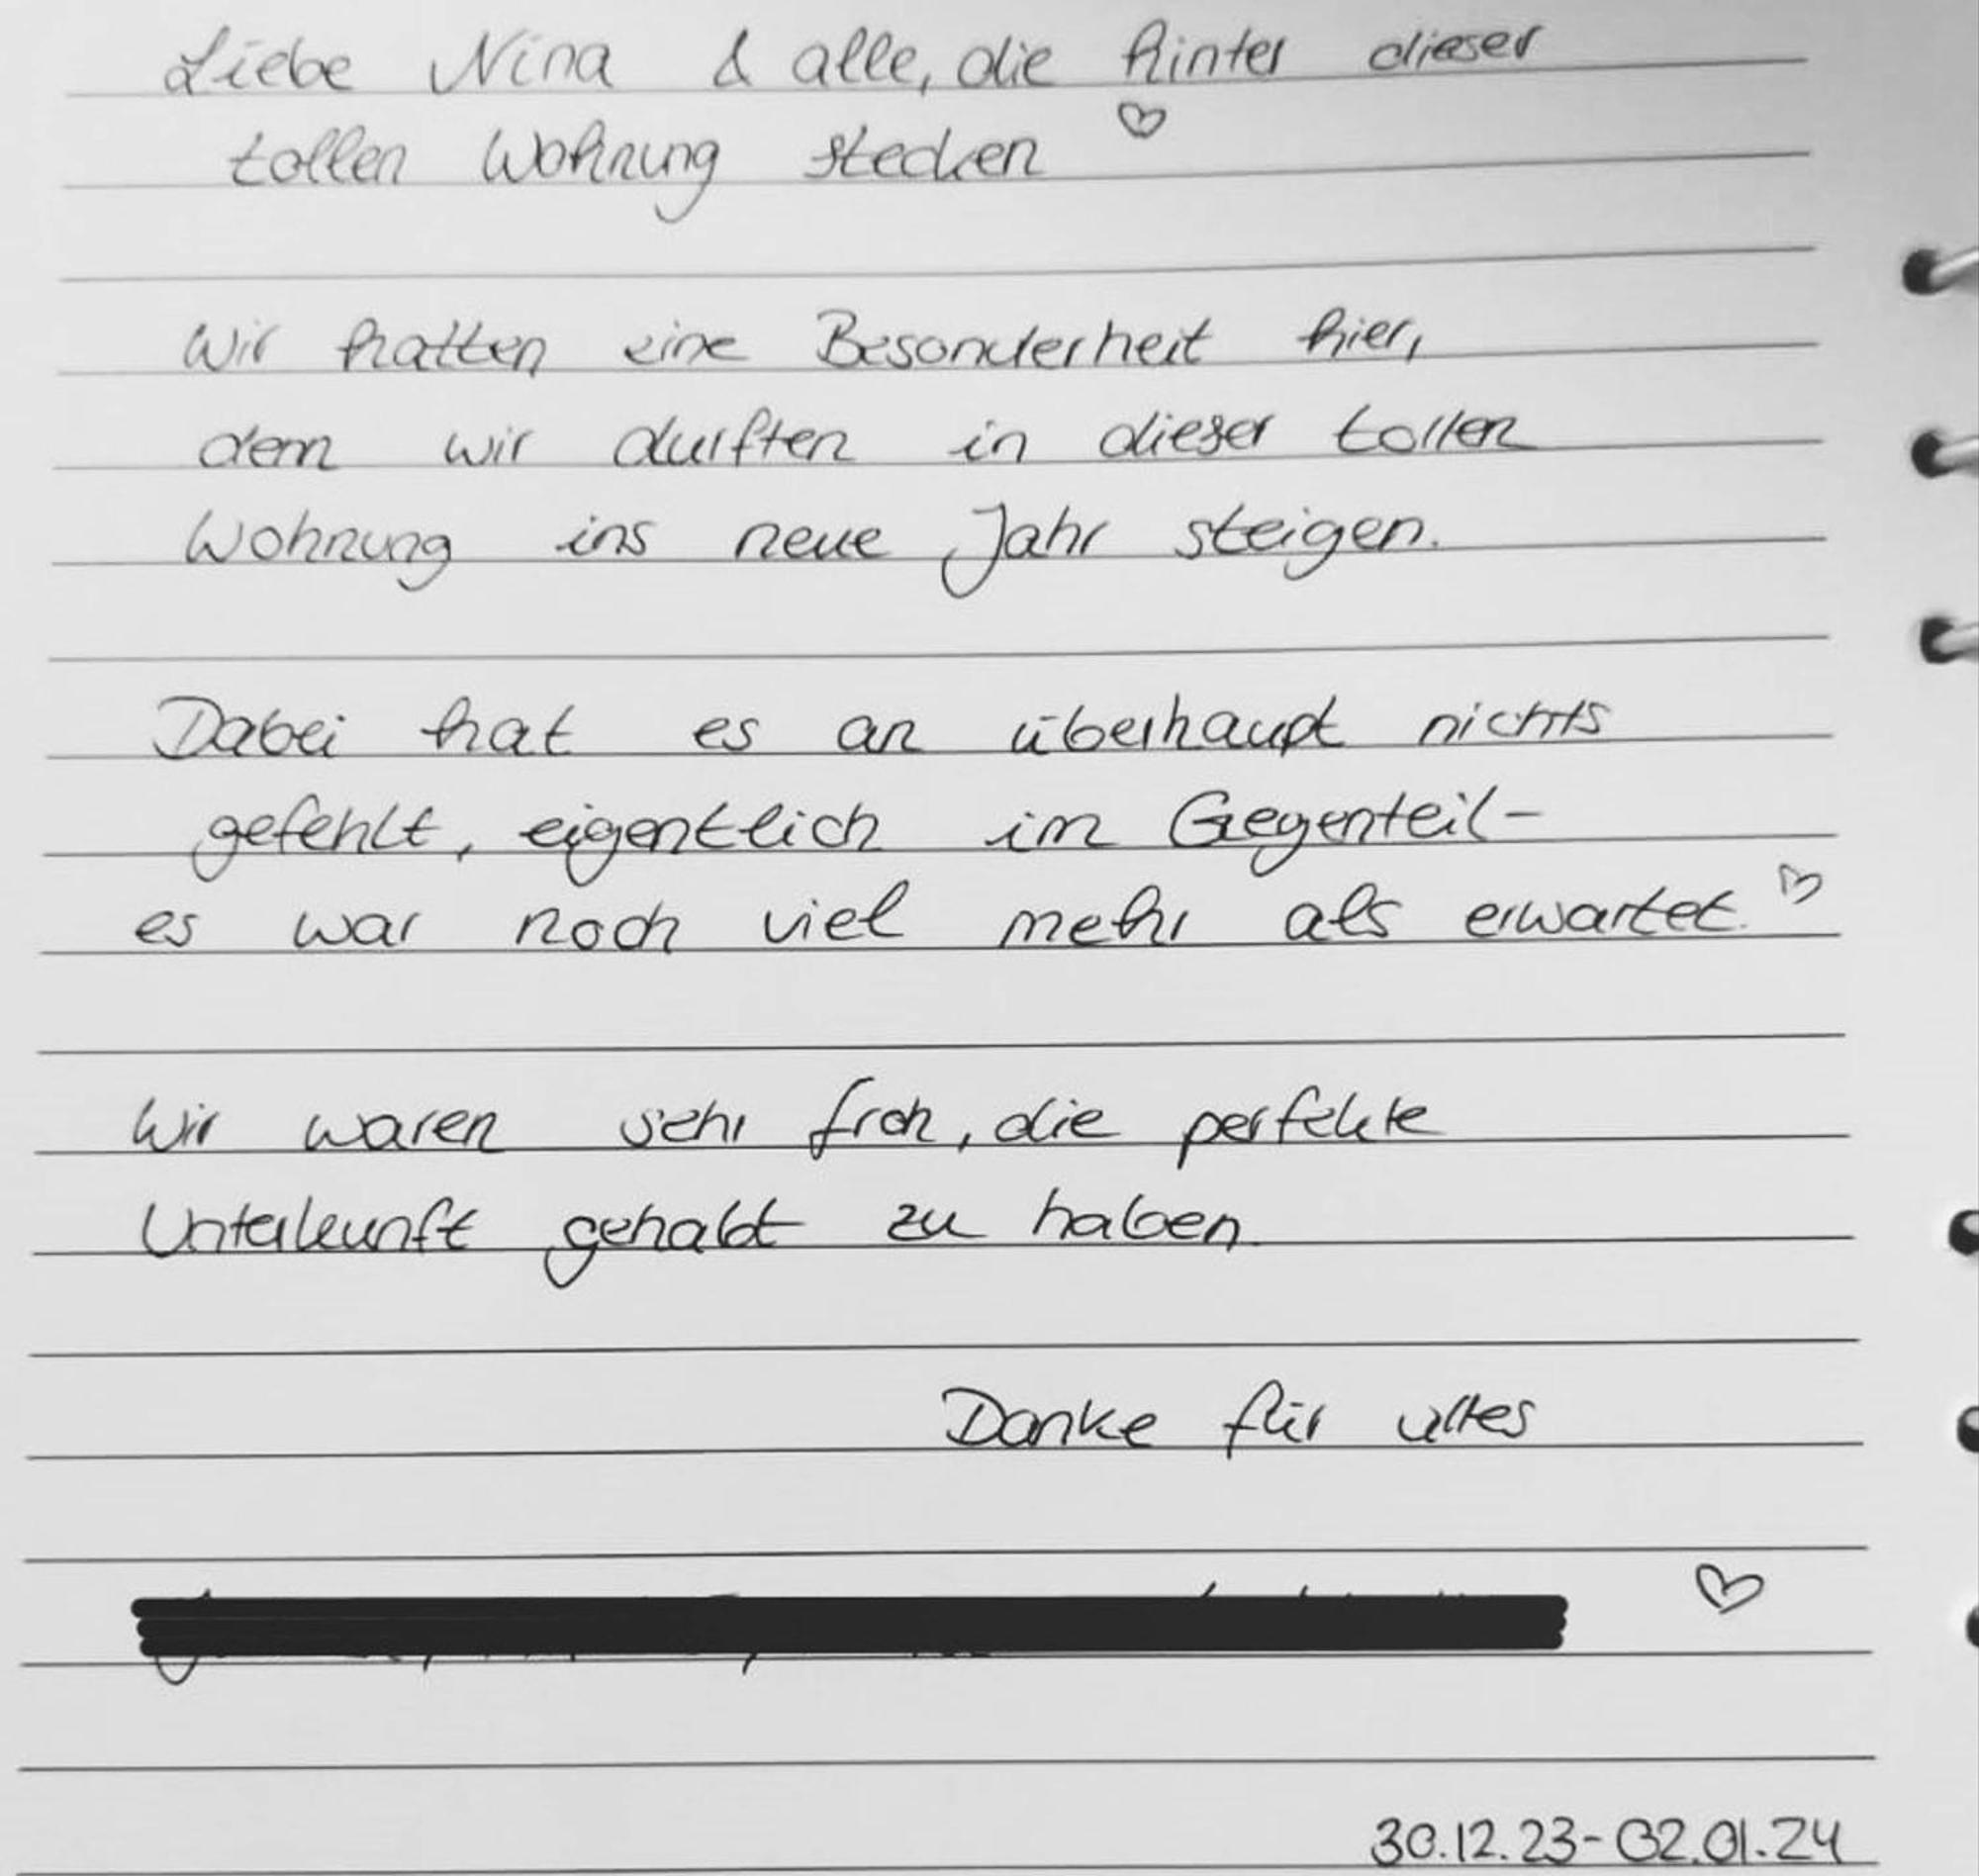 Liebe Nina & alle, die hinter dieser
tollen Wohnung stecken ♡
Wir hatten eine Besonderheit hier,
denn wir durften in dieser tollen
Wohnung ins neue Jahr steigen.
Dabei hat es an überhaupt nichts
gefehlt, eigentlich im Gegenteil-
es war noch viel mehr als erwartet. ♡
Wir waren sehr froh, die perfekte
Unterkunft gehabt zu haben.
Danke für alles
♡
30.12.23-02.01.24